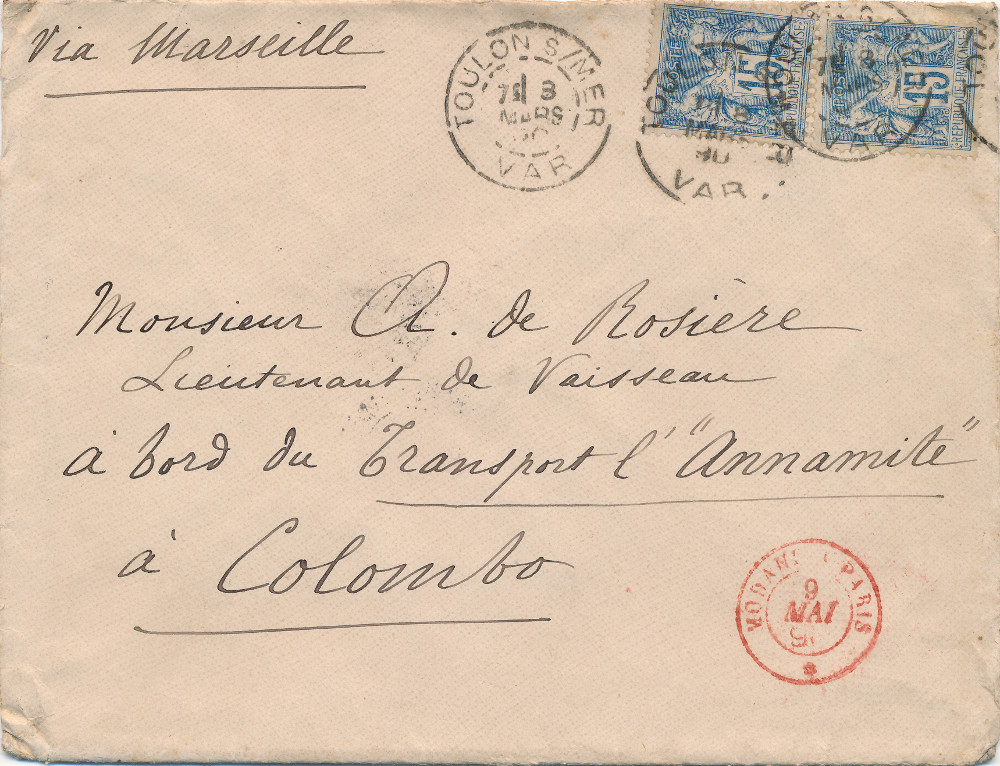 Via Marseille
TOULON S/MER
7E 8
MARS
90
VAR
TOULON
8
MARS
90
VAR
15
REPUBLIQUE FRANÇAISE
8
VAR
15
REPUBLIQUE FRANÇAISE
Monsieur A. de Rosière
Lieutenant de Vaisseau
à bord du Transport l'"Annamite"
à Colombo
PARIS
9
MAI